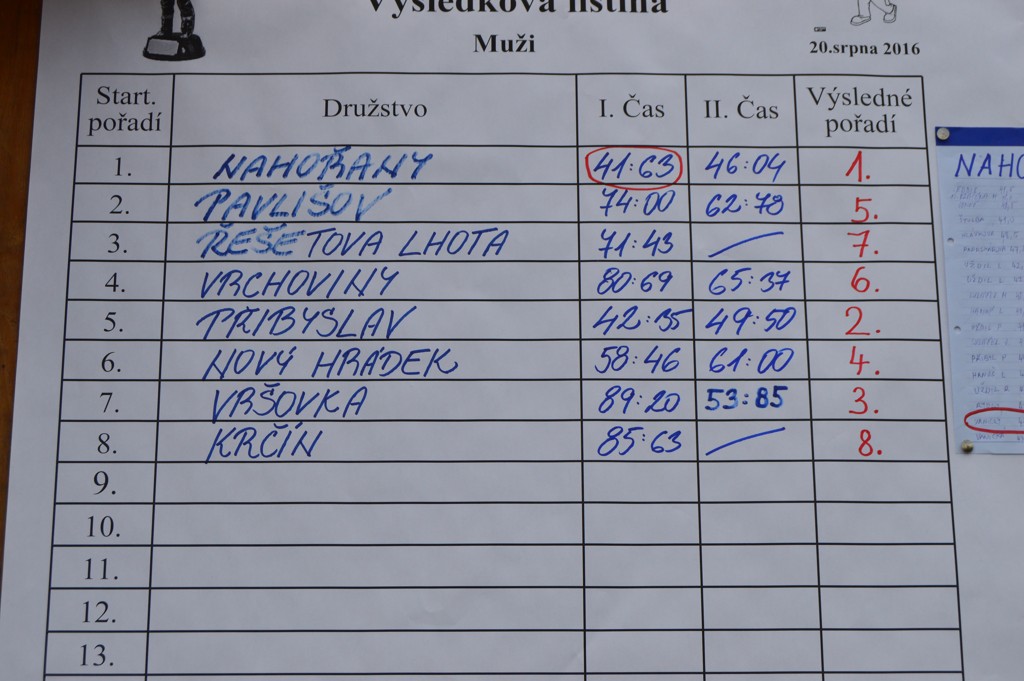 Výsledková listina
Muži
20.srpna 2016
Start. pořadí Družstvo I. Čas II. Čas Výsledné pořadí
1. NAHOŘANY 41:63 46:04 1.
2. PAVLIŠOV 74:00 62:78 5.
3. ŘEŠETOVA LHOTA 71:43 — 7.
4. VRCHOVINY 80:69 65:37 6.
5. PŘIBYSLAV 42:35 49:50 2.
6. NOVÝ HRÁDEK 58:46 61:00 4.
7. VRŠOVKA 89:20 53:85 3.
8. KRČÍN 85:63 — 8.
9.
10.
11.
12.
13.
NAHO